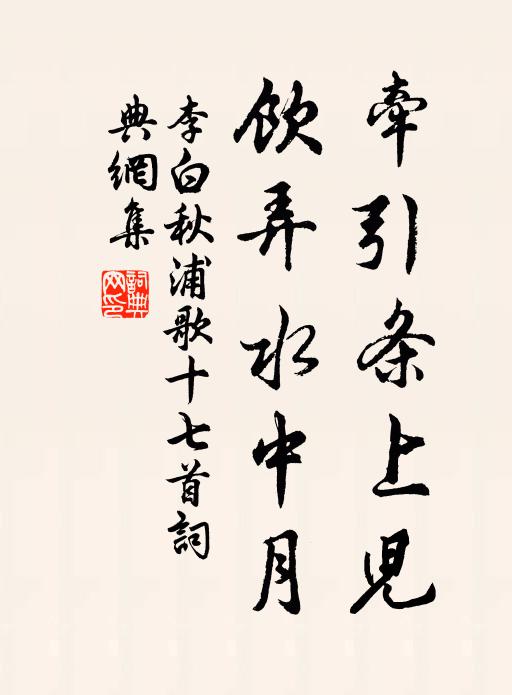 牵引条上児
饮弄水中月
李白秋浦歌十七首詞
典網集
詞典
网印